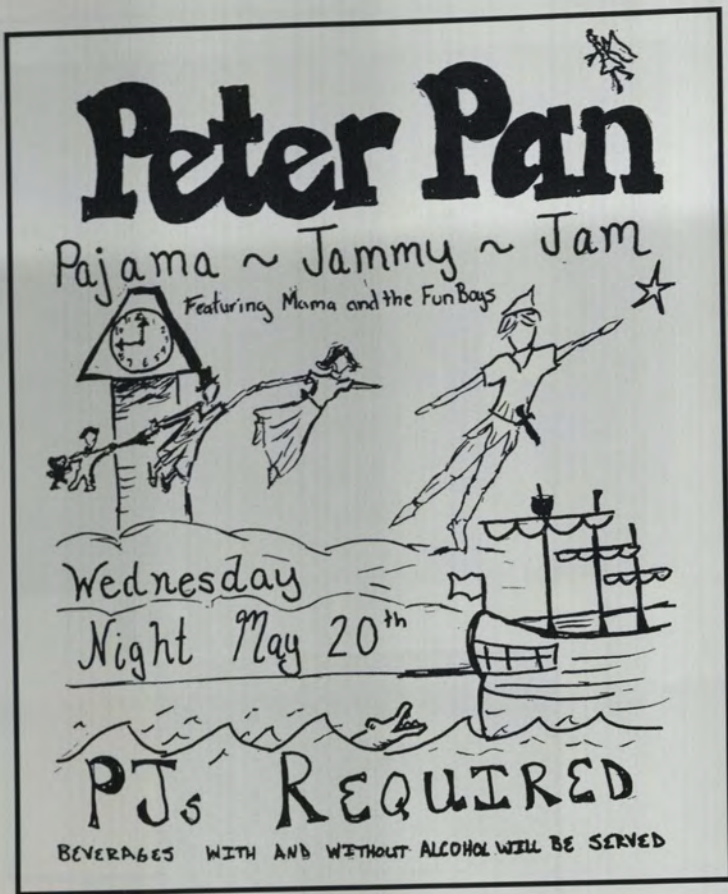 Peter Pan
Pajama ~ Jammy ~ Jam
Featuring Mama and the Fun Boys
Wednesday
Night May 20th
PJs REQUIRED
BEVERAGES WITH AND WITHOUT ALCOHOL WILL BE SERVED